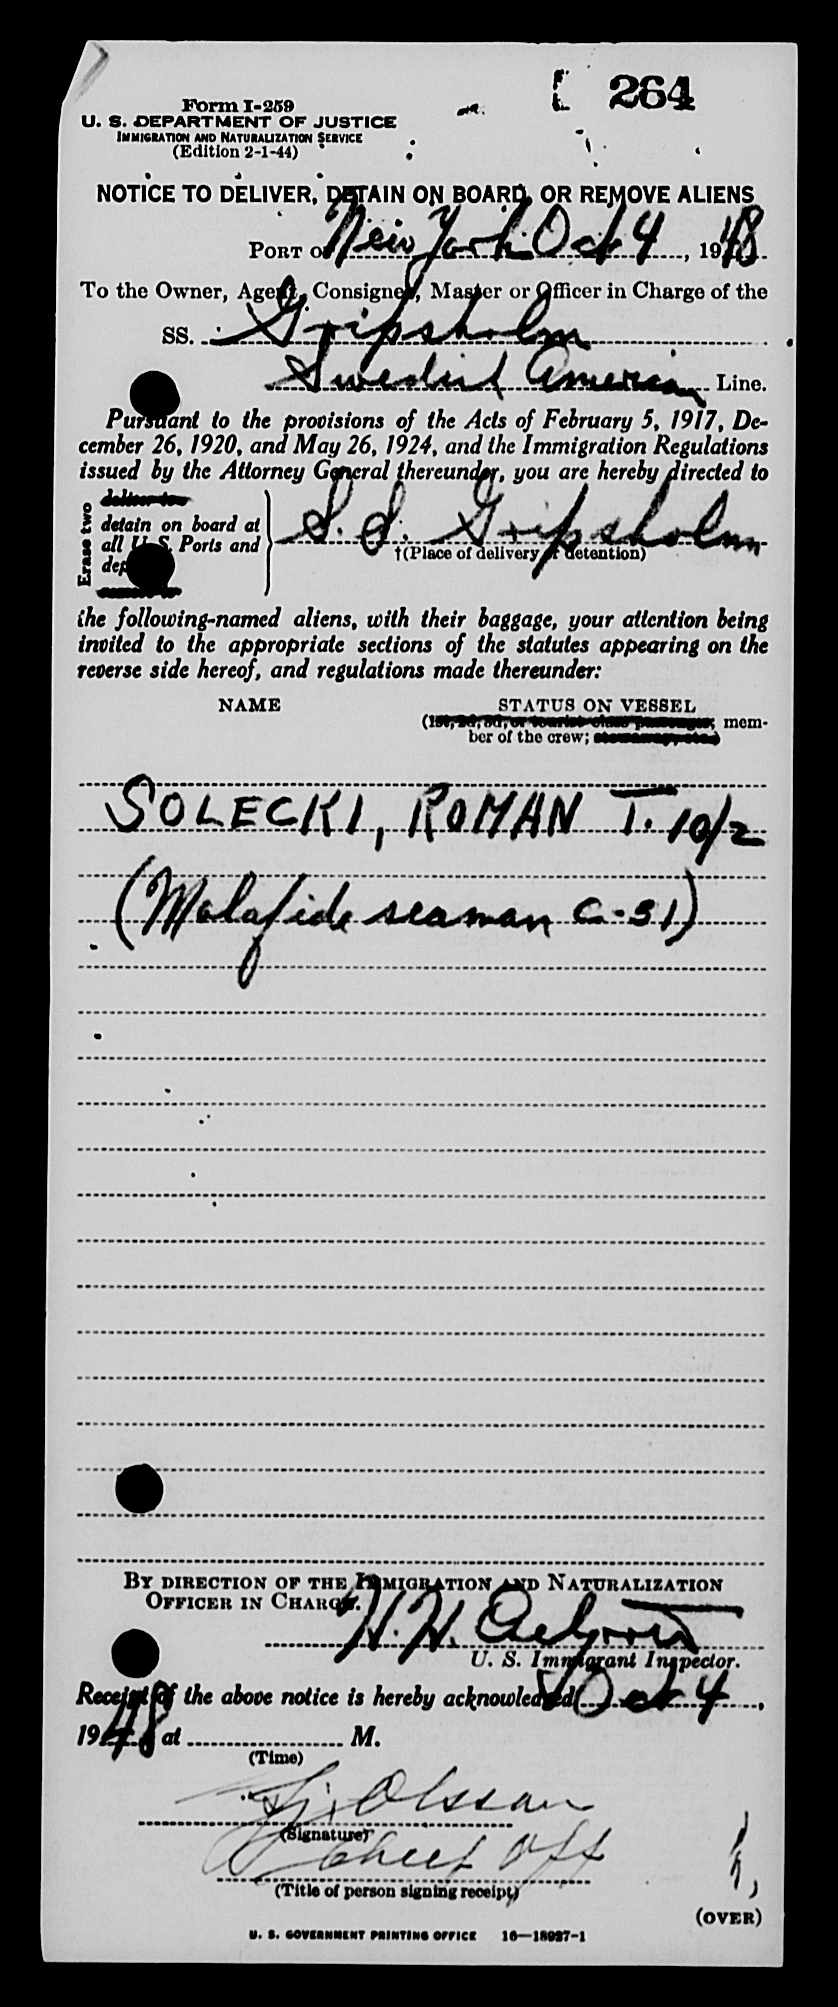 264
Form I-259
U. S. DEPARTMENT OF JUSTICE
IMMIGRATION AND NATURALIZATION SERVICE
(Edition 2-1-44)
NOTICE TO DELIVER, DETAIN ON BOARD, OR REMOVE ALIENS
PORT of New York Oct 4, 1948
To the Owner, Agent, Consignee, Master or Officer in Charge of the
SS. Gripsholm
Swedish American Line.
Pursuant to the provisions of the Acts of February 5, 1917, De-
cember 26, 1920, and May 26, 1924, and the Immigration Regulations
issued by the Attorney General thereunder, you are hereby directed to
Erase two
deliver to
detain on board at
all U. S. Ports and
S. S. Gripsholm
†(Place of delivery or detention)
the following-named aliens, with their baggage, your attention being
invited to the appropriate sections of the statutes appearing on the
reverse side hereof, and regulations made thereunder:
NAME
STATUS ON VESSEL
(1st, 2d, 3d, or tourist class passenger; mem-
ber of the crew;
SOLECKI, ROMAN T. 10/2
(Malafide seaman C-31)
BY DIRECTION OF THE IMMIGRATION AND NATURALIZATION
OFFICER IN CHARGE.
H. H.
U. S. Immigrant Inspector.
Receipt of the above notice is hereby acknowledged Oct 4,
1948 at M.
(Time)
Olsson
(Signature)
Chief Off
(Title of person signing receipt)
(OVER)
U. S. GOVERNMENT PRINTING OFFICE 16—18927-1